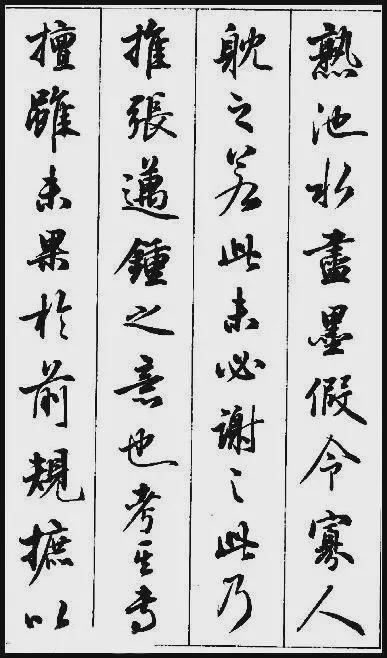 熟池水盡墨假令寡人
耽之若此未必謝之此乃
推張邁鍾之意也考其專
擅雖未果於前規摭以